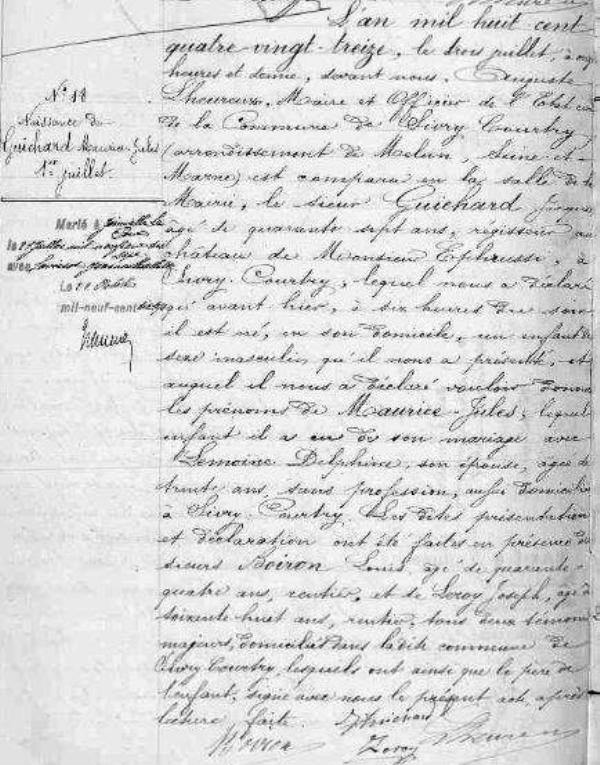 L'an mil huit cent
quatre-vingt-treize, le trois juillet, à onze
heures et demie, devant nous, Auguste
Lheureux, Maire et Officier de l'Etat ci
de la Commune de Sivry Courtry
(arrondissement de Melun, Seine-et-
Marne) est comparu en la salle de la
Mairie, le sieur Guichard Jacques
âgé de quarante sept ans, régisseur au
château de Monsieur Ephrussi, à
Sivry-Courtry, lequel nous a déclaré
qu'avant hier, à six heures du soir
il est né, en son domicile, un enfant de
sexe masculin qu'il nous a présenté, et
auquel il nous a déclaré vouloir donner
les prénoms de Maurice-Jules; lequel
enfant il a eu de son mariage avec
Lemoine Delphine, son épouse, âgée de
trente ans, sans profession, aussi domiciliée
à Sivry-Courtry. Les dites présentation
et déclaration ont été faites en présence des
sieurs Boiron Louis, âgé de quarante-
quatre ans, rentier, et de Leroy Joseph, âgé de
soixante-huit ans, rentier, tous deux témoins
majeurs, domiciliés dans la dite commune de
Sivry Courtry, lesquels ont ainsi que le père de
l'enfant, signé avec nous le présent acte, après
lecture faite.
Guichard
Boiron
Leroy
Lheureux
N° 18
Naissance de
Guichard Maurice-Jules
1er juillet.
Marié à
le
avec
Le
mil-neuf-cent